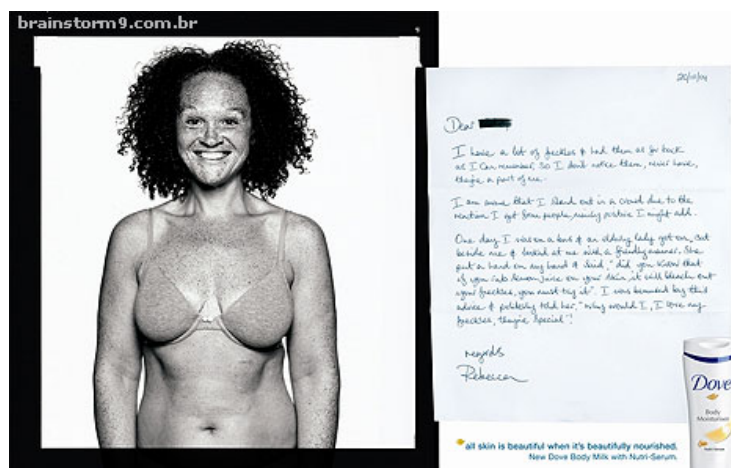 brainstorm9.com.br
Dear
I have a lot of freckles & had them as far back
as I can remember, so I don't notice them, never have,
they're a part of me.
I am aware that I stand out in a crowd due to the
reaction I get from people, mainly positive I might add.
One day I was on a bus & an elderly lady got on, sat
beside me & looked at me with a friendly manner. She
put a hand on my hand & said, "did you know that
if you rub lemon juice on your skin it will bleach out
your freckles, you must try it". I was bemused by this
advice & politely told her, "why would I, I love my
freckles, they're special"!
regards
Rebecca
Dove
Body
all skin is beautiful when it's beautifully nourished.
New Dove Body Milk with Nutri-Serum.